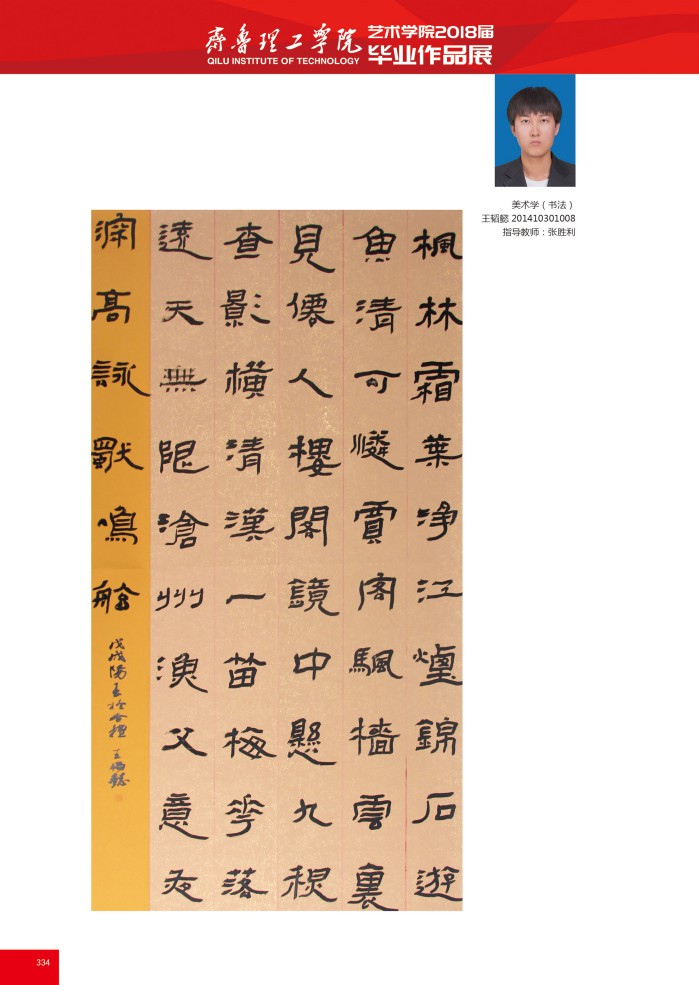 齊魯理工學院
QILU INSTITUTE OF TECHNOLOGY
艺术学院2018届
毕业作品展
美术学（书法）
王韬懿 201410301008
指导教师：张胜利
楓林霜葉净江煙錦石遊
魚清可憐賈客颿檣雲裏
見僊人樓閣鏡中懸九秋
查影橫清漢一笛梅花落
遠天無限滄州漁父意夜
深高詠獸鳴舷
戊戌陽春
334